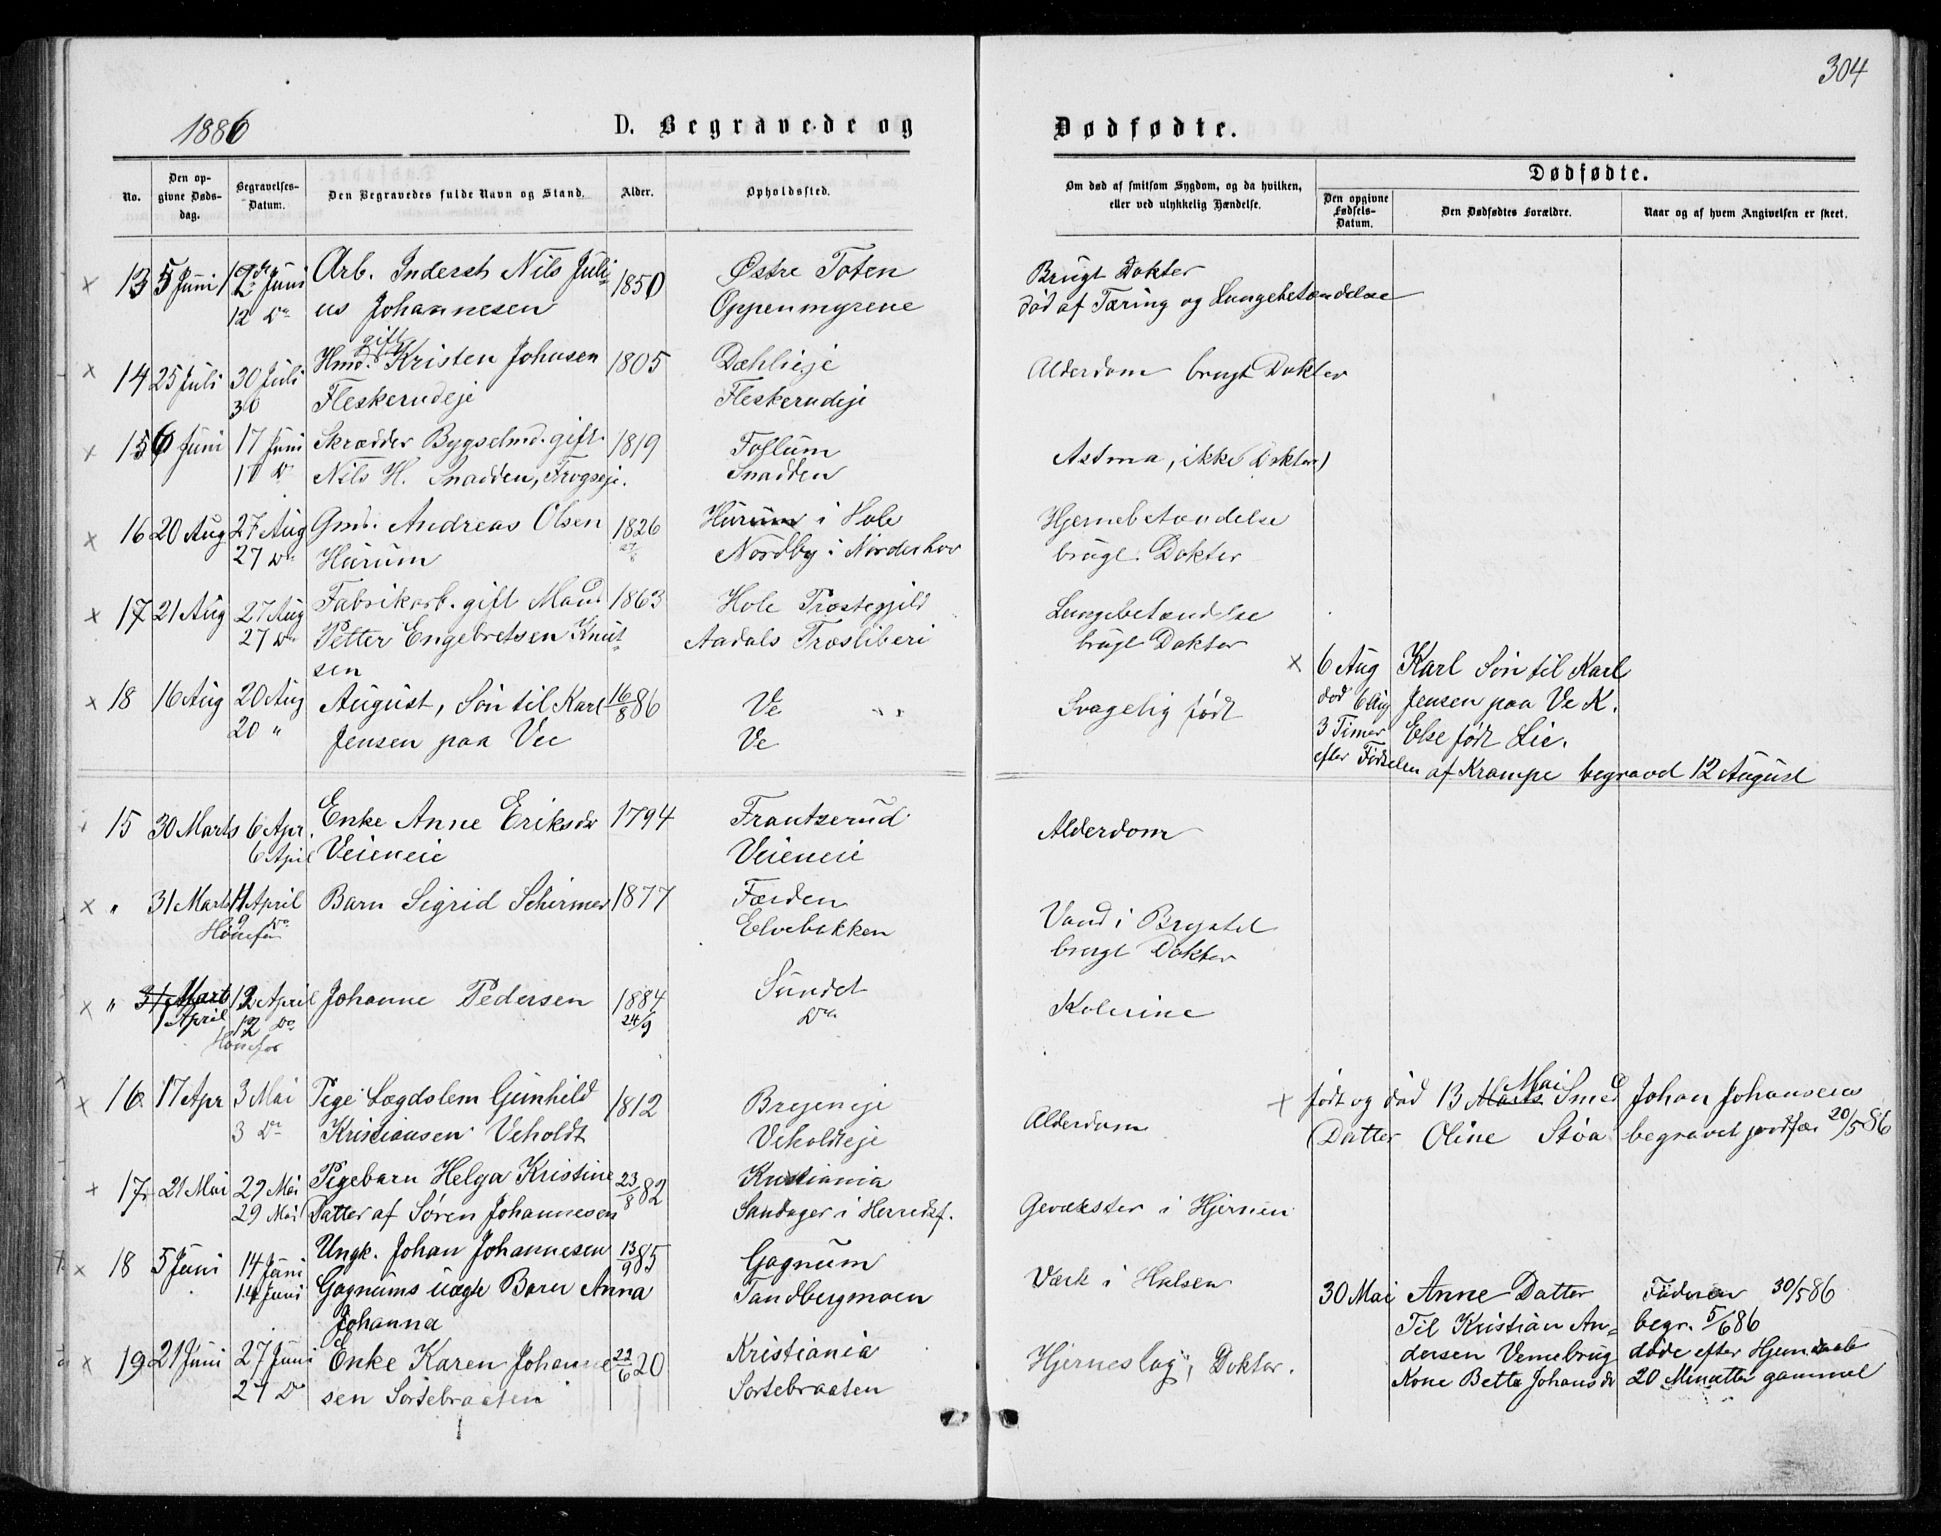 304
1886
D. Begravede og Dødfødte.
No.
Den opgivne Dødsdag.
Begravelses-Datum.
Den Begravedes fulde Navn og Stand.
Alder.
Opholdssted.
Om død af smitsom Sygdom, og da hvilken, eller ved ulykkelig Hændelse.
Dødfødte.
Den opgivne Fødsels-Datum.
Den Dødfødtes Forældre.
Naar og af hvem Angivelsen er skeet.
× 13 5 Juni 12 Juni Arb. Inderst Nils Juli- 1850 Østre Toten Brugt Dokter
12 Do us Johannesen Oppenmyrene død af Tæring og Lungebetændelse
× 14 25 Juli 30 Juli Hmd. gift Kristen Johnsen 1805 Dæhlieje Alderdom brugt Dokter
30 Fleskerudeje Fleskerudeje
× 15 6 Juni 17 Juni Skrædder Bygselmd. gift 1819 Follum Astma, ikke Dokter
17 Do Nils H. Snadden, Frogseje. Snadden
× 16 20 Aug 27 Aug Gmd. Andreas Olsen 1826 Hurum i Hole Hjernebetændelse
27 Do Hurum Nordby i Norderhov brugt Dokter
× 17 21 Aug 27 Aug Fabrikarb. gift Mand 1863 Hole Præstegjeld Lungebetændelse
27 Do Petter Engebretsen Knut- Aadals Træsliberi brugt Dokter
sen
× 18 16 Aug 20 Aug August, Søn til Karl 16/8 86 Ve Svagelig født
20 " Jensen paa Vee Ve
× 6 Aug Karl Søn til Karl
død 6 Aug Jensen paa Ve K.
3 Timer Else født Lie.
efter Fødselen af Krampe begravd 12 August
15 30 Marts 6 Apr. Enke Anne Eriksdr 1794 Frantzerud Alderdom
6 April Veieneie Veieneie
× " 31 Marts 11 April Barn Sigrid Schirmer 1877 Færden Vand i Brystet
Do Hønefos Elvebakken brugt Dokter
× " 31 Mart 12 April Johanne Pedersen 1884 Sundet Kolerine
April 12 Do 24/9 Do
Hønefos
× 16 17 Apr 3 Mai Pige Lægdslem Gunhild 1812 Bregeneje Alderdom
3 Do Kristiansen Veholdt Veholdteje
× født og død 13 Marts Mai Smed Johan Johansens
Datter Oline Støa begravet jordfæ 20/5 86
× 17 21 Mai 29 Mai Pigebarn Helga Kristine 23/8 82 Kristiania Gevækster i Hjernen
29 Mai Datter af Søren Johannesen Sandager i Herredsf.
× 18 5 Juni 14 Juni Ungk. Johan Johannesen 13/9 85 Gagnum Værk i Halsen
14 Juni Gagnums uægte Barn Anna Tandbergmoen
Johanna
30 Mai Anne Datter Faderen 30/5 86
Til Kristian An- begr. 5/6 86
dersen Vemebrug døde efter Hjemdaab
Kone Betta Johansdr 20 Minutter gammel
× 19 21 Juni 27 Juni Enke Karen Johanne- 22/6 20 Kristiania Hjerneslag, Dokter.
27 Do sen Sortebraaten Sortebraaten